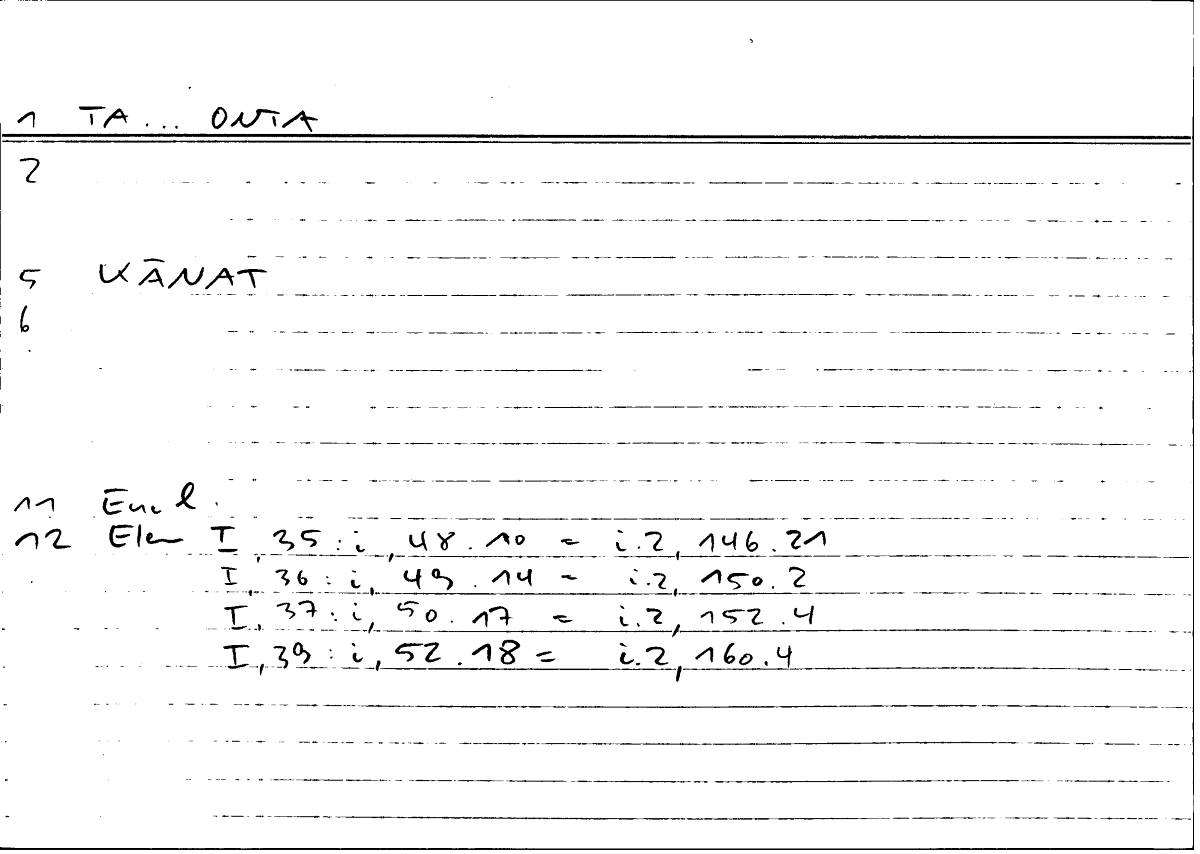 1 TA... ONTA
2
5 KĀNAT
6
11 Eucl.
12 Elem I, 35 : i, 48.10 = i.2, 146.21
I, 36 : i, 49.14 = i.2, 150.2
I, 37 : i, 50.17 = i.2, 152.4
I, 39 : i, 52.18 = i.2, 160.4